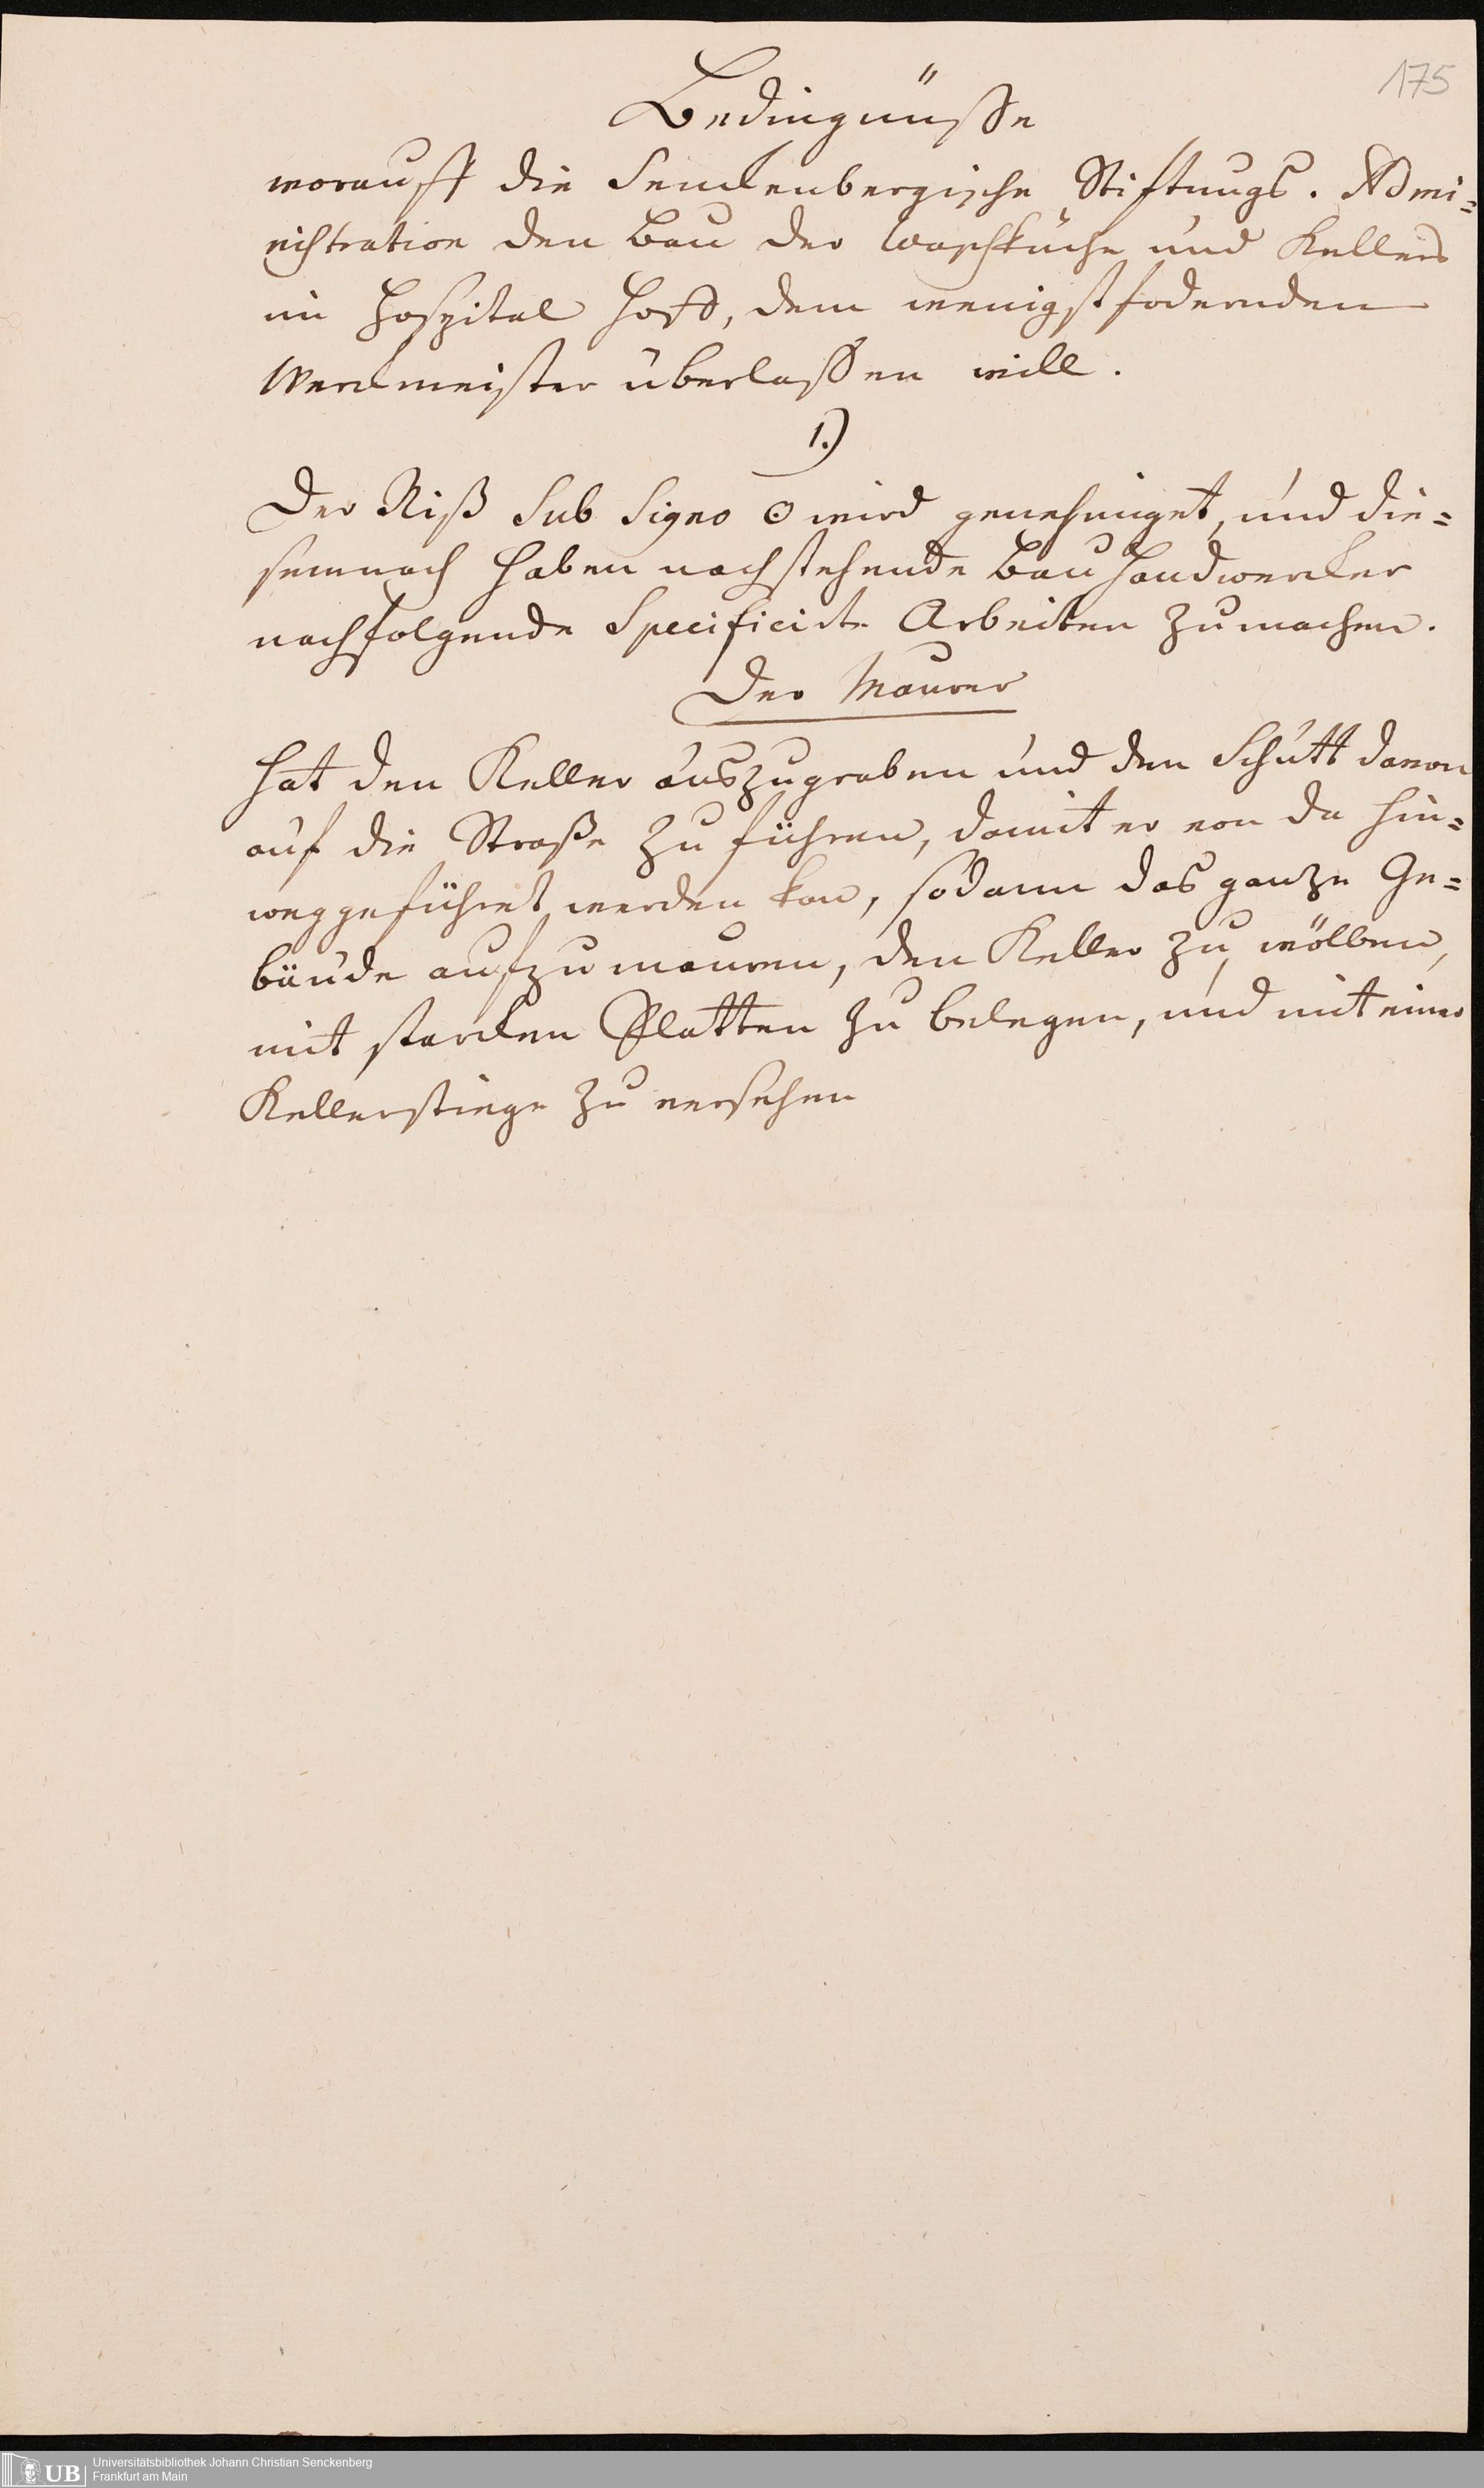 175
Bedingnüße
worauff die Senckenbergische Stiftungs. Admi=
nistration den Bau der Waschküche und Kellers
im Hospital Hoff, dem wenigst fodernden
Werckmeister überlaßen will.
1.)
Der Riß Sub Signo ⊙ wird genehmiget, und die=
semnach haben nachstehende Bau Handwercker
nachfolgende Specificirte Arbeiten zu machen.
Der Maurer
hat den Keller auszugraben und den Schutt davon
auf die Straße zu führen, damit er von da hin=
weggeführet werden kan, sodann das ganze Ge=
bäude aufzumauren, den Keller zu wölben,
mit starcken Platten zu belegen, und mit einer
Kellerstiege zu versehen
UB
Universitätsbibliothek Johann Christian Senckenberg
Frankfurt am Main